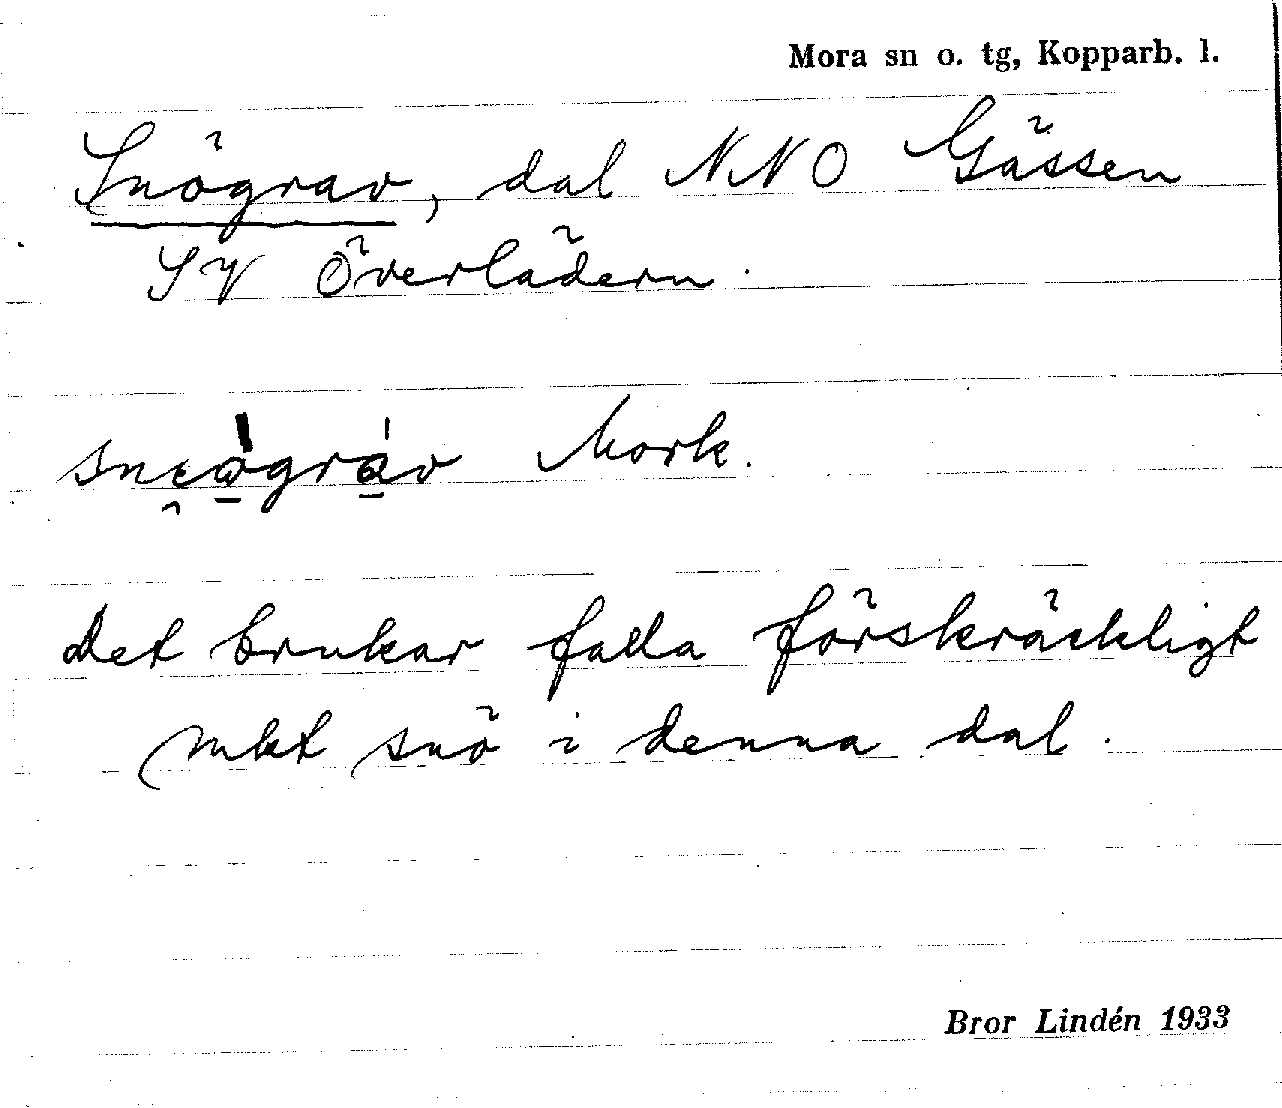 Mora sn o. tg, Kopparb. l.
Snögrav, dal NNO Gässen
SV Överlädern.
Mork.
det brukar falla förskräckligt
mkt snö i denna dal.
Bror Lindén 1933